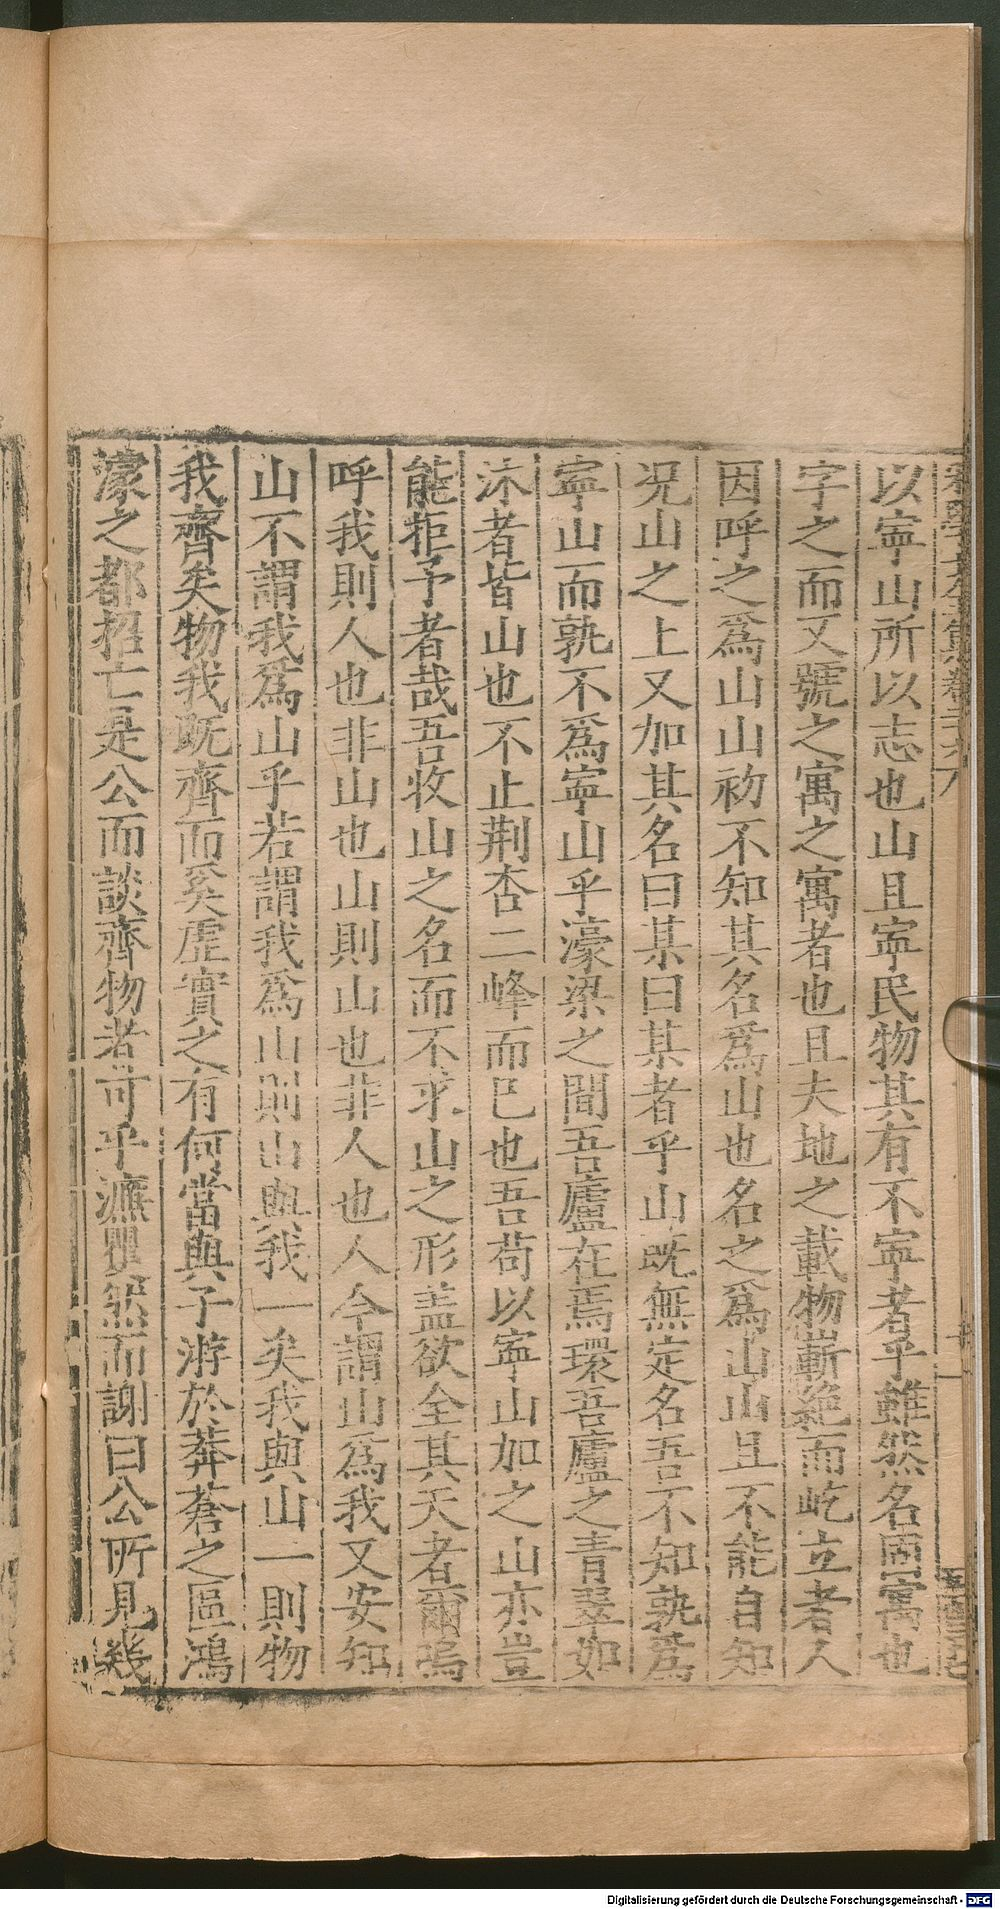 以寧山所以志也山且寧民物其有不寧者乎雖然名固寓也
字之而又號之寓之寓者也且夫地之載物嶄絶而屹立者人
因呼之爲山山初不知其名爲山也名之爲山山且不能自知
况山之上又加其名曰某曰某者乎山既無定名吾不知孰爲
寧山而孰不爲寧山乎濠梁之間吾廬在焉環吾廬之青翠如
沐者皆山也不止荆杏二峰而巳也吾苟以寧山加之山亦豈
能拒予者哉吾牧山之名而不求山之形盖欲全其天者爾嗚
呼我則人也非山也山則山也非人也人今謂山爲我又安知
山不謂我爲山乎若謂我爲山則山與我一矣我與山一則物
我齊矣物我既齊而奚虛實之有何當與子游於莽蒼之區鴻
濛之都招亡是公而談齊物者可乎濂瞿然而謝曰公所見幾
Digitalisierung gefördert durch die Deutsche Forschungsgemeinschaft - DFG